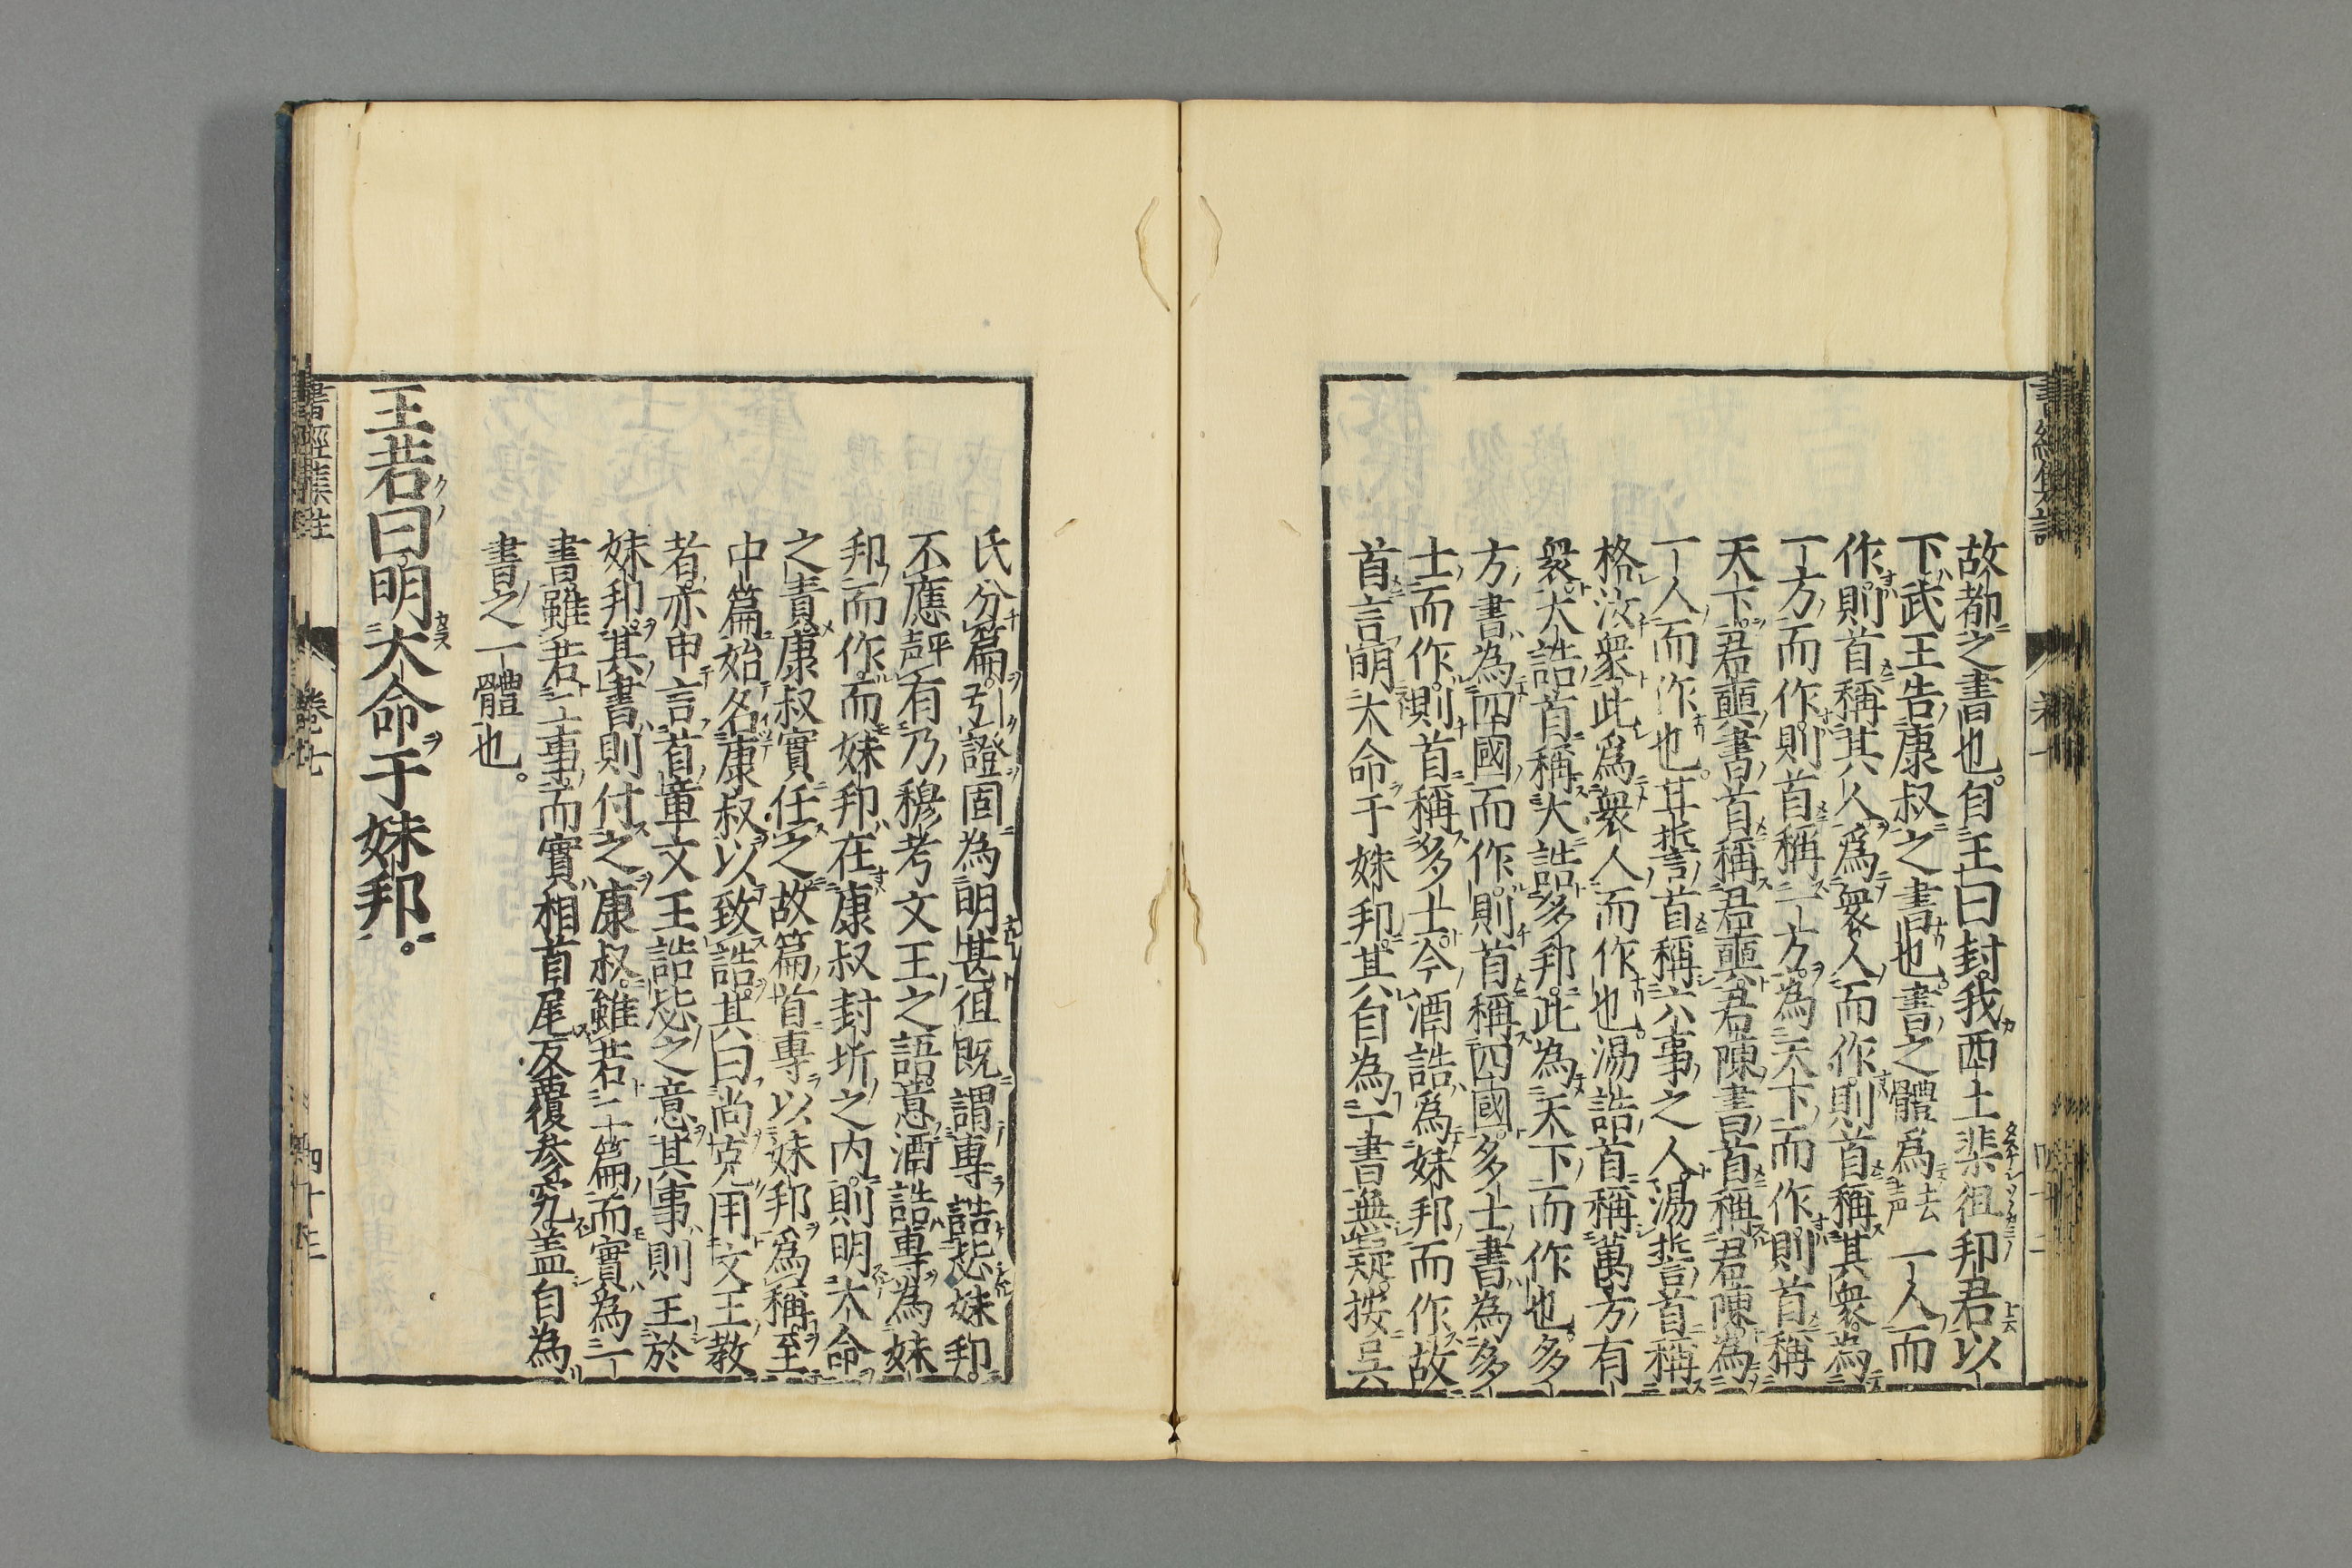 故都之書也自王曰封我西土棐徂邦君以
下武王告康叔之書也書之體爲去声一人而
作則首稱其人爲衆人而作則首稱其衆為
一方而作則首稱一方為天下而作則首稱
天下君奭書首稱君奭君陳書首稱君陳為
一人而作也甘誓首稱六事之人湯誓首稱
格汝衆此爲衆人而作也湯誥首稱萬方有
衆大誥首稱大誥多邦此為天下而作也多
方書為四國而作則首稱四國多士書為多
士而作則首稱多士今酒誥爲妹邦而作故
首言明大命于妹邦其自為一書無疑按吳
氏分篇引證固為明甚但既謂專誥毖妹邦
不應平声有乃穆考文王之語意酒誥專為妹
邦而作而妹邦在康叔封圻之内則明大命
之責康叔實任之故篇首專以妹邦爲稱至
中篇始名康叔以致誥其曰尚克用文王教
者亦申言首章文王誥毖之意其事則王於
妹邦其書則付之康叔雖若二篇而實為一
書雖若二事而實相首尾反覆參究盖自為
書之一體也。
王若曰明大命于妹邦。
書經集註 卷七 四十三